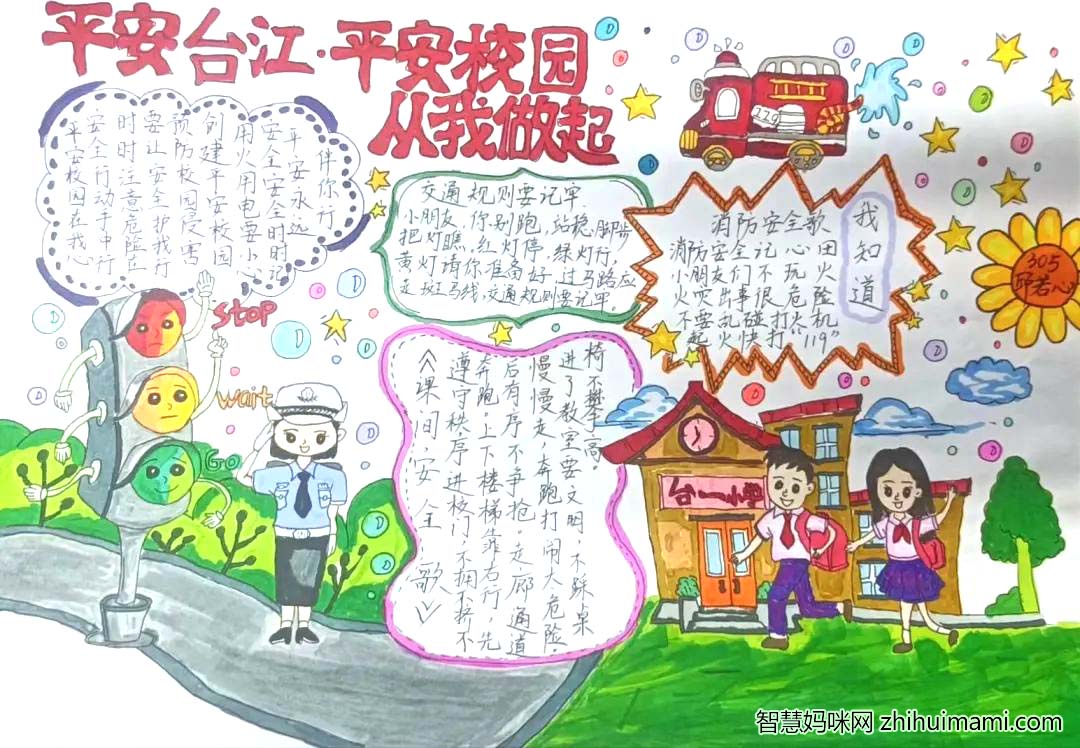 平安台江·平安校园
从我做起
平安校园在我心
安全行动手中行
时时注意危险在
要让安全护我行
预防校园侵害
创建平安校园
用火用电要小心
安全安全时时记
平安永远
伴你行
交通规则要记牢
小朋友,你别跑,站稳脚步
把灯瞧,红灯停,绿灯行,
黄灯请你准备好,过马路应
走斑马线,交通规则要记牢。
我知道
消防安全歌
消防安全记心田
小朋友们不玩火
火灾出事很危险
不要乱碰打火机
起火快打"119"
305
邱若心
stop
wait
Go
《课间安全歌》
遵守秩序进校门,不拥不挤不
奔跑。上下楼梯靠右行,先
后有序不争抢。走廊通道
慢慢走,奔跑打闹大危险。
进了教室要文明,不踩桌
椅不攀高。
台一小学
智慧妈咪网 zhihuimami.com